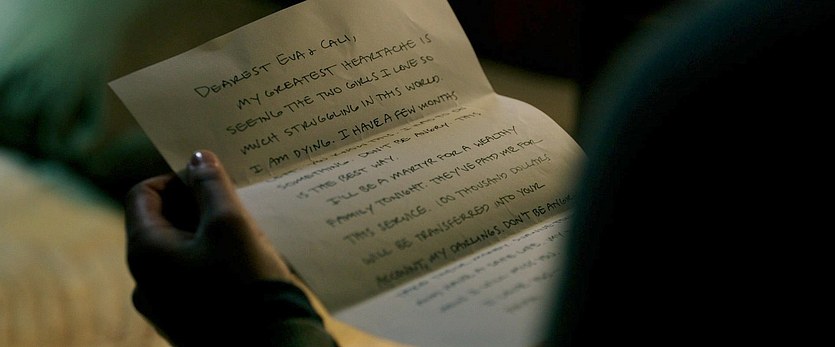 DEAREST EVA & CALI,
MY GREATEST HEARTACHE IS
SEEING THE TWO GIRLS I LOVE SO
MUCH STRUGGLING IN THIS WORLD.
I AM DYING. I HAVE A FEW MONTHS
SOMETHING. DON'T BE ANGRY. THIS
IS THE BEST WAY.
I'LL BE A MARTYR FOR A WEALTHY
FAMILY TONIGHT. THEY'VE PAID ME FOR
THIS SERVICE. 100 THOUSAND DOLLARS
WILL BE TRANSFERRED INTO YOUR
ACCOUNT, MY DARLINGS. DON'T BE